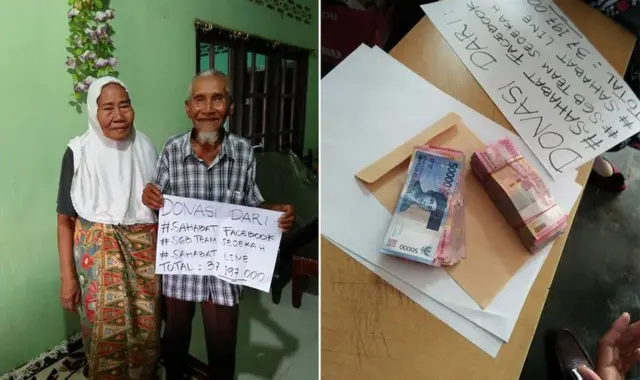 DONASI DARI
#SAHABAT FACEBOOK
#SGB TEAM SEDEKAH
#SAHABAT LINE
TOTAL : 37,197.000
DONASI DARI :
#SAHABAT FACEBOOK
#SGB TEAM SEDEKAH
#SAHABAT LINE
TOTAL : 37,197.000
50000
50000